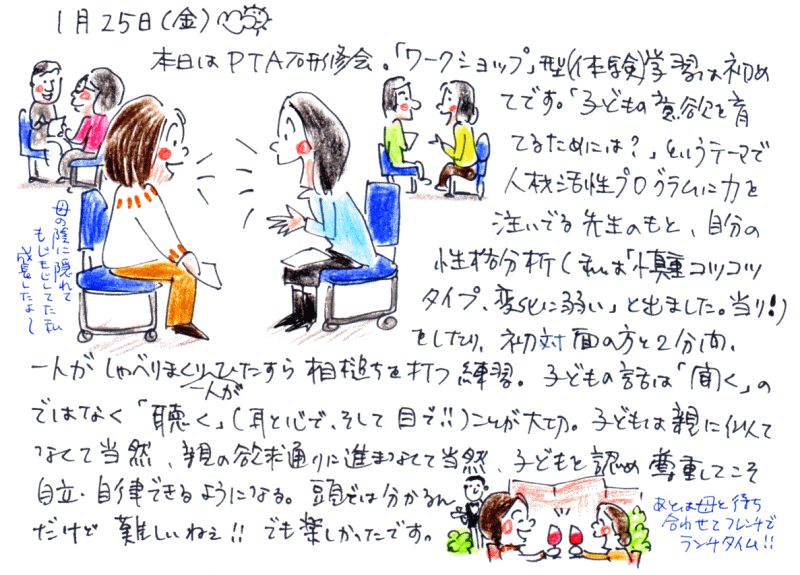 1月25日(金)
本日はPTA研修会。「ワークショップ」型(体験)学習は初め
てです。「子どもの意欲を育
てるためには?」というテーマで
人材活性プログラムに力を
注いでる先生のもと、自分の
性格分析(私は「慎重コツコツ
タイプ、変化に弱い」と出ました。当り!)
をしたり、初対面の方と2分間、
一人がしゃべりまくり、一人がひたすら相槌ちを打つ練習。子どもの話は「聞く」の
ではなく「聴く」(耳と心で、そして目で!!)ことが大切。子どもは親に似て
なくて当然、親の欲求通りに進まなくて当然、子どもを認め尊重してこそ
自立・自律できるようになる。頭では分かるん
だけど難しいねぇ!!でも楽しかったです。
母の陰に隠れて
もじもじしてた私
成長したよ〜
あとは母と待ち
合わせてフレンチで
ランチタイム!!